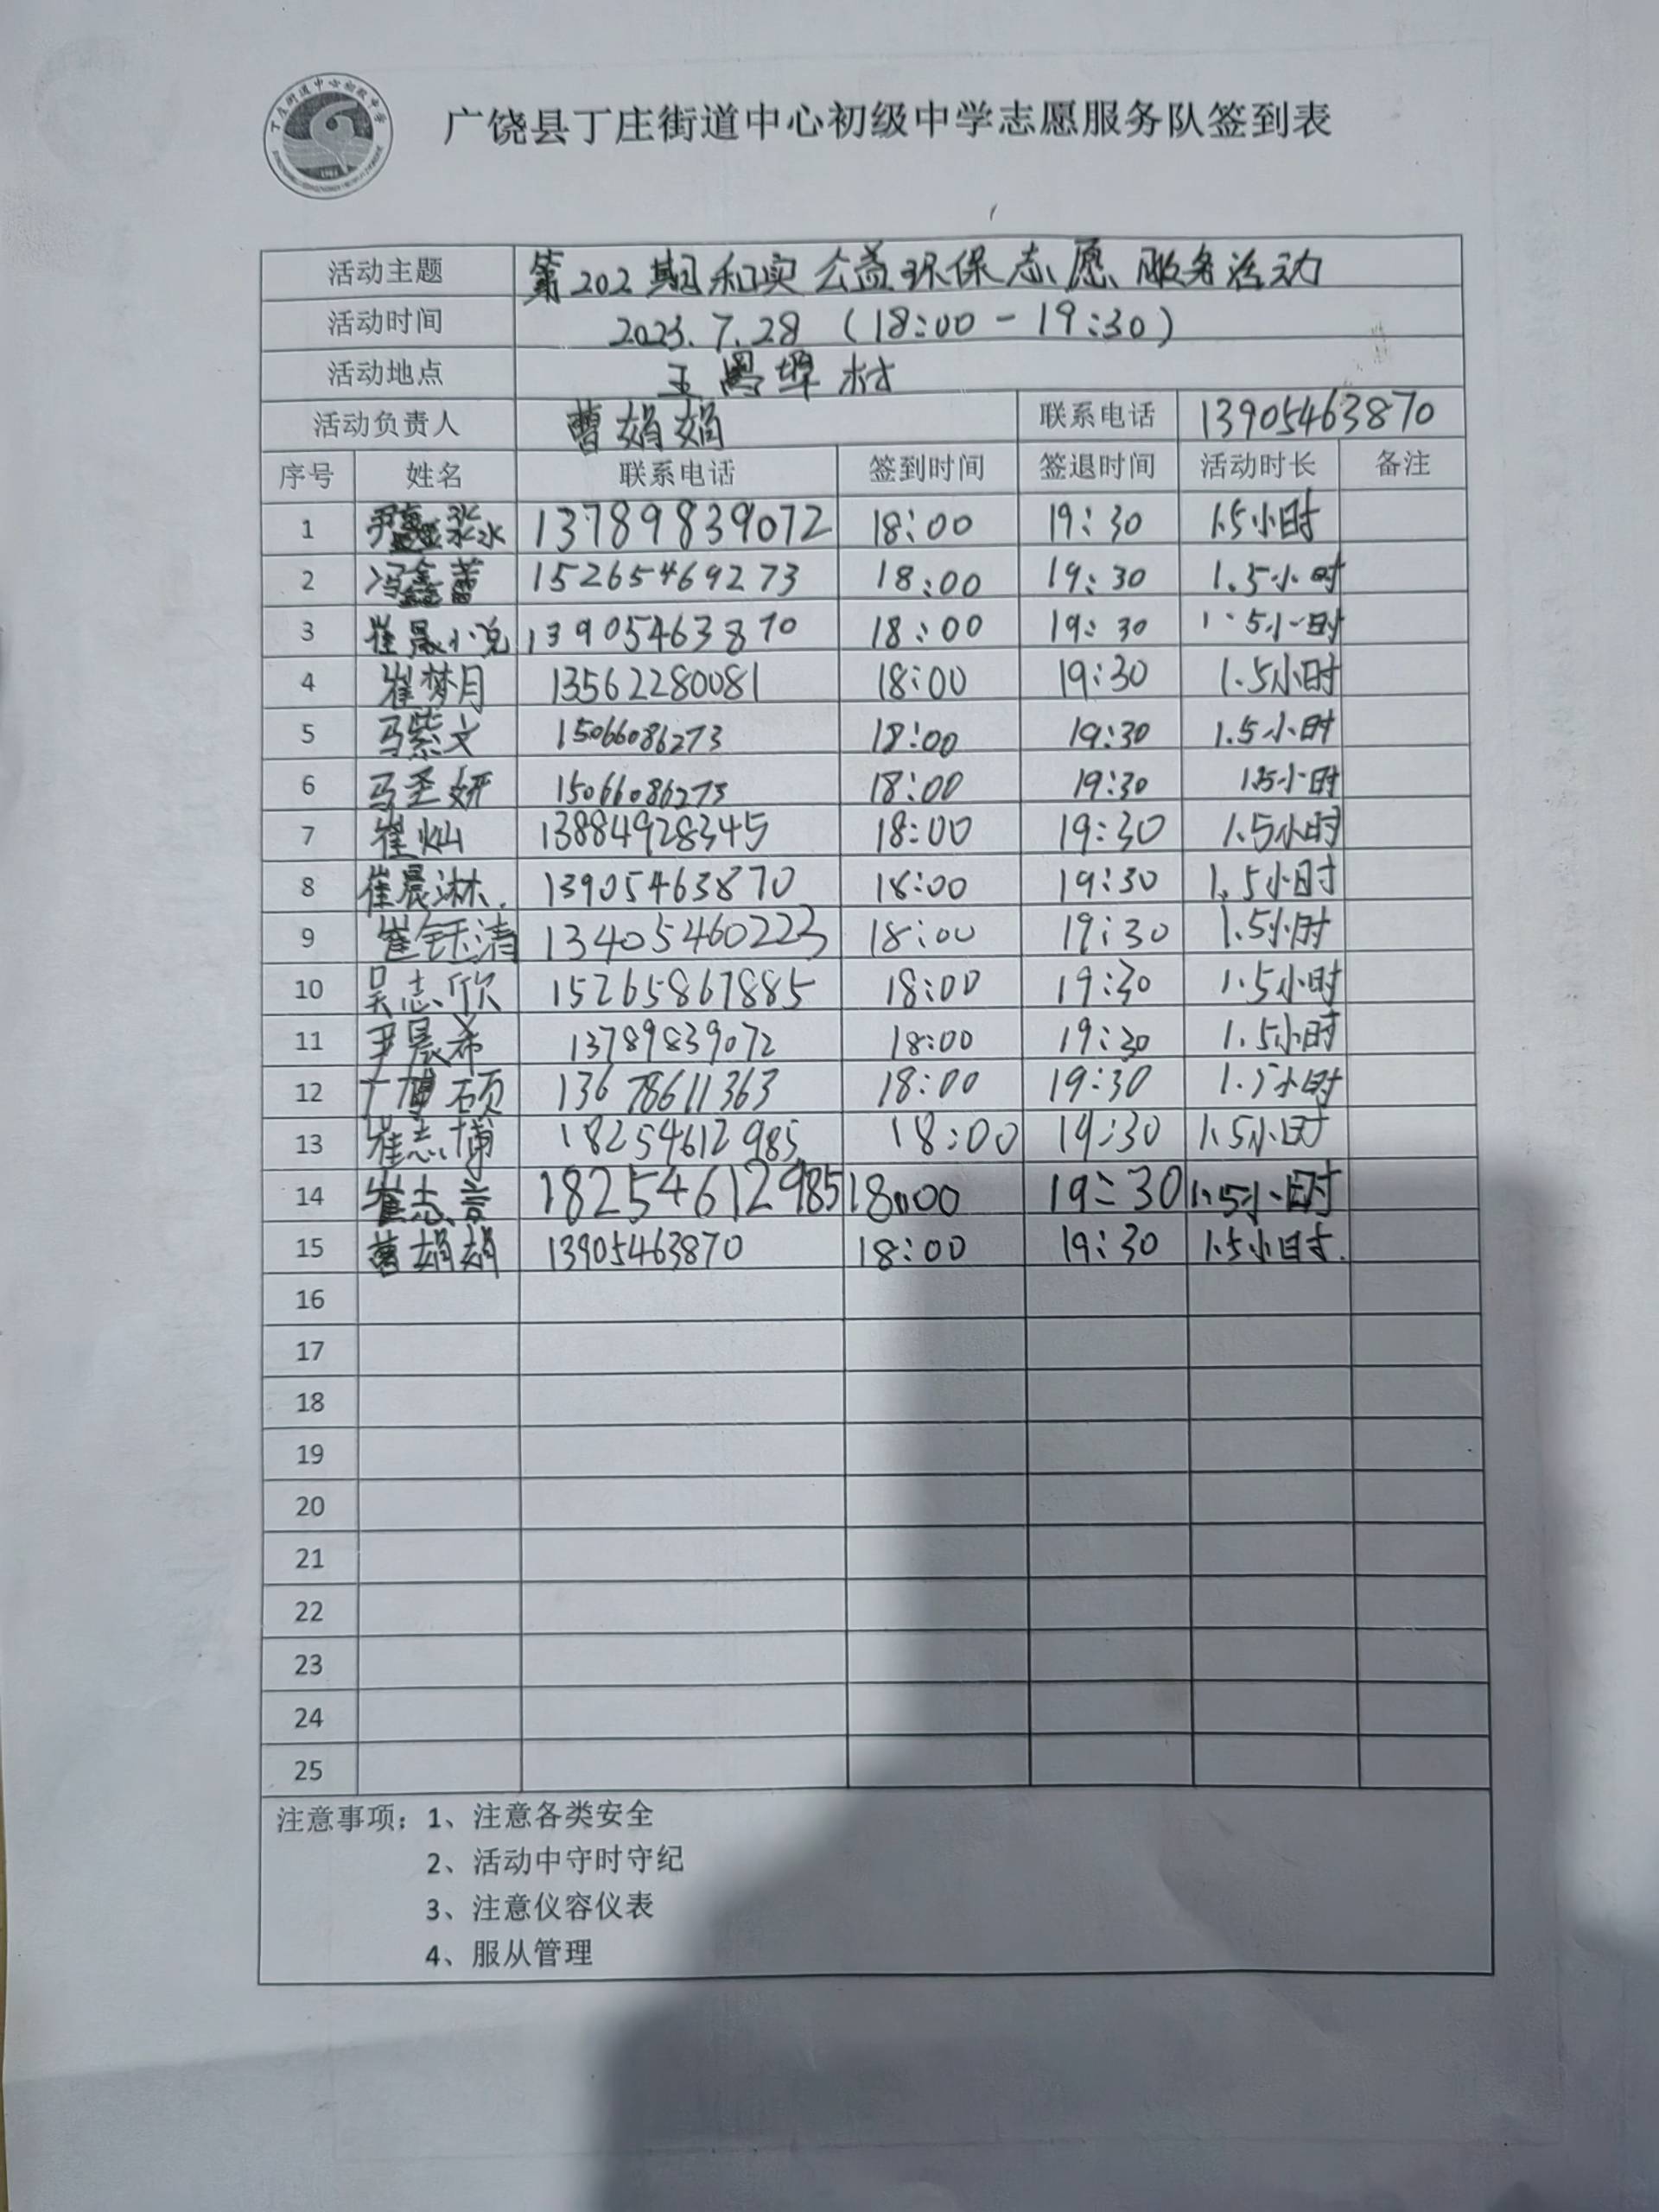 丁庄街道中心初级中学
广饶县丁庄街道中心初级中学志愿服务队签到表
活动主题 第202期和实公益环保志愿服务活动
活动时间 2023.7.28 (18:00-19:30)
活动地点 王署埠村
活动负责人 曹娟娟 联系电话 13905463870
序号 姓名 联系电话 签到时间 签退时间 活动时长 备注
1 尹鑫淼 13789839072 18:00 19:30 1.5小时
2 冯鑫蕾 15265469273 18:00 19:30 1.5小时
3 崔晟 13905463870 18:00 19:30 1.5小时
4 崔梦月 13562280081 18:00 19:30 1.5小时
5 马紫文 15066086273 18:00 19:30 1.5小时
6 马圣妍 15066086273 18:00 19:30 1.5小时
7 崔灿 13884928345 18:00 19:30 1.5小时
8 崔晨淋. 13905463870 18:00 19:30 1.5小时
9 崔钰清 13405460223 18:00 19:30 1.5小时
10 吴志欣 15265867885 18:00 19:30 1.5小时
11 尹晨希 13789839072 18:00 19:30 1.5小时
12 博硕 13678611363 18:00 19:30 1.5小时
13 崔志博 18254612985 18:00 19:30 1.5小时
14 崔志言 18254612985 18:00 19:30 1.5小时
15 曹娟娟 13905463870 18:00 19:30 1.5小时.
16
17
18
19
20
21
22
23
24
25
注意事项：1、注意各类安全
2、活动中守时守纪
3、注意仪容仪表
4、服从管理